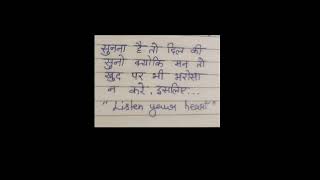 सुनना है तो दिल की
सुनो क्योकि मन तो
खुद पर भी भरोसा
न करे, इसलिए...
"Listen your heart"